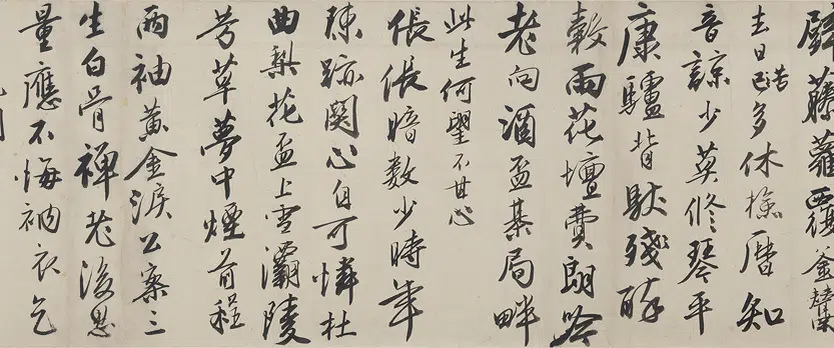 壁藤蘿覆釜
去日已苦多休檢曆知
音諒少莫修琴平
康驢背馱殘醉
穀雨花壇費朗吟
老向酒盃棊局畔
此生何望不甘心
倀倀暗數少時年
陳跡關心自可憐杜
曲梨花盃上雪灞陵
芳草夢中煙前程
兩袖黃金淚公案三
生白骨禪老後思
量應不悔衲衣乞